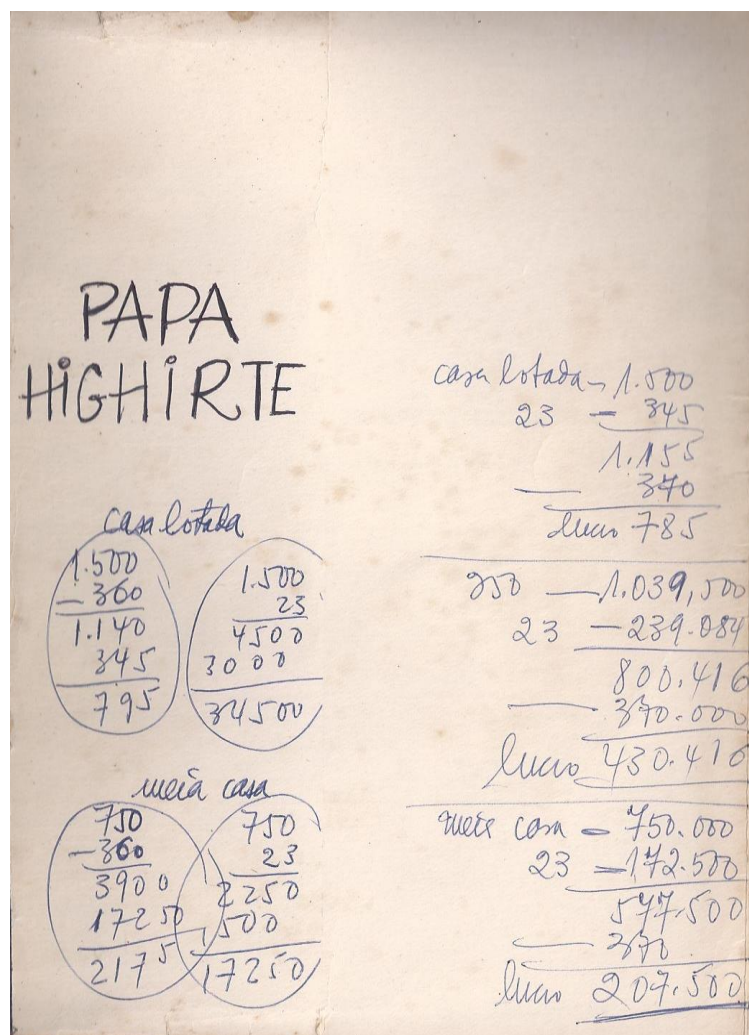 PAPA
HIGHIRTE
casa lotada
1.500
- 360
1.140
345
795
1.500
23
4500
3000
34500
meia casa
750
- 360
3900
17250
2175
750
23
2250
1500
17250
casa lotada - 1.500
23 - 345
1.155
— 370
lucro 785
— 1.039,500
23 - 239.084
800.416
— 370.000
lucro 430.416
meia casa = 750.000
23 - 172.500
577.500
— 370
lucro 207.500